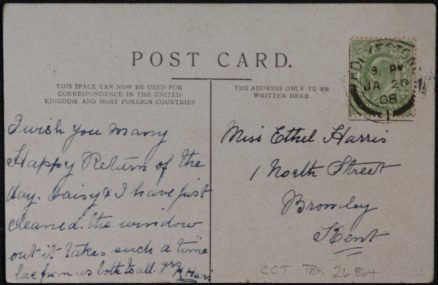 POST CARD.
THIS SPACE CAN NOW BE USED FOR
CORRESPONDENCE IN THE UNITED
KINGDOM AND MOST FOREIGN COUNTRIES
THE ADDRESS ONLY TO BE
WRITTEN HERE
JA 20
08
I wish you many
Happy Return of the
day. Daisy & I have just
cleaned. the window
out it takes such a time
from us both to all.
Miss Ethel Harris
1 North Street
Bromley
Kent
CCT TBK 26864